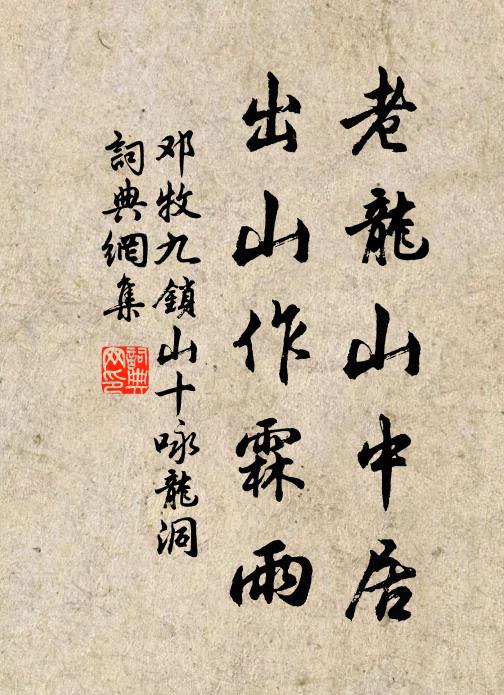 老龍山中居
出山作霖雨
邓牧九鎖山十咏龍洞
詞典網集
詞典网印